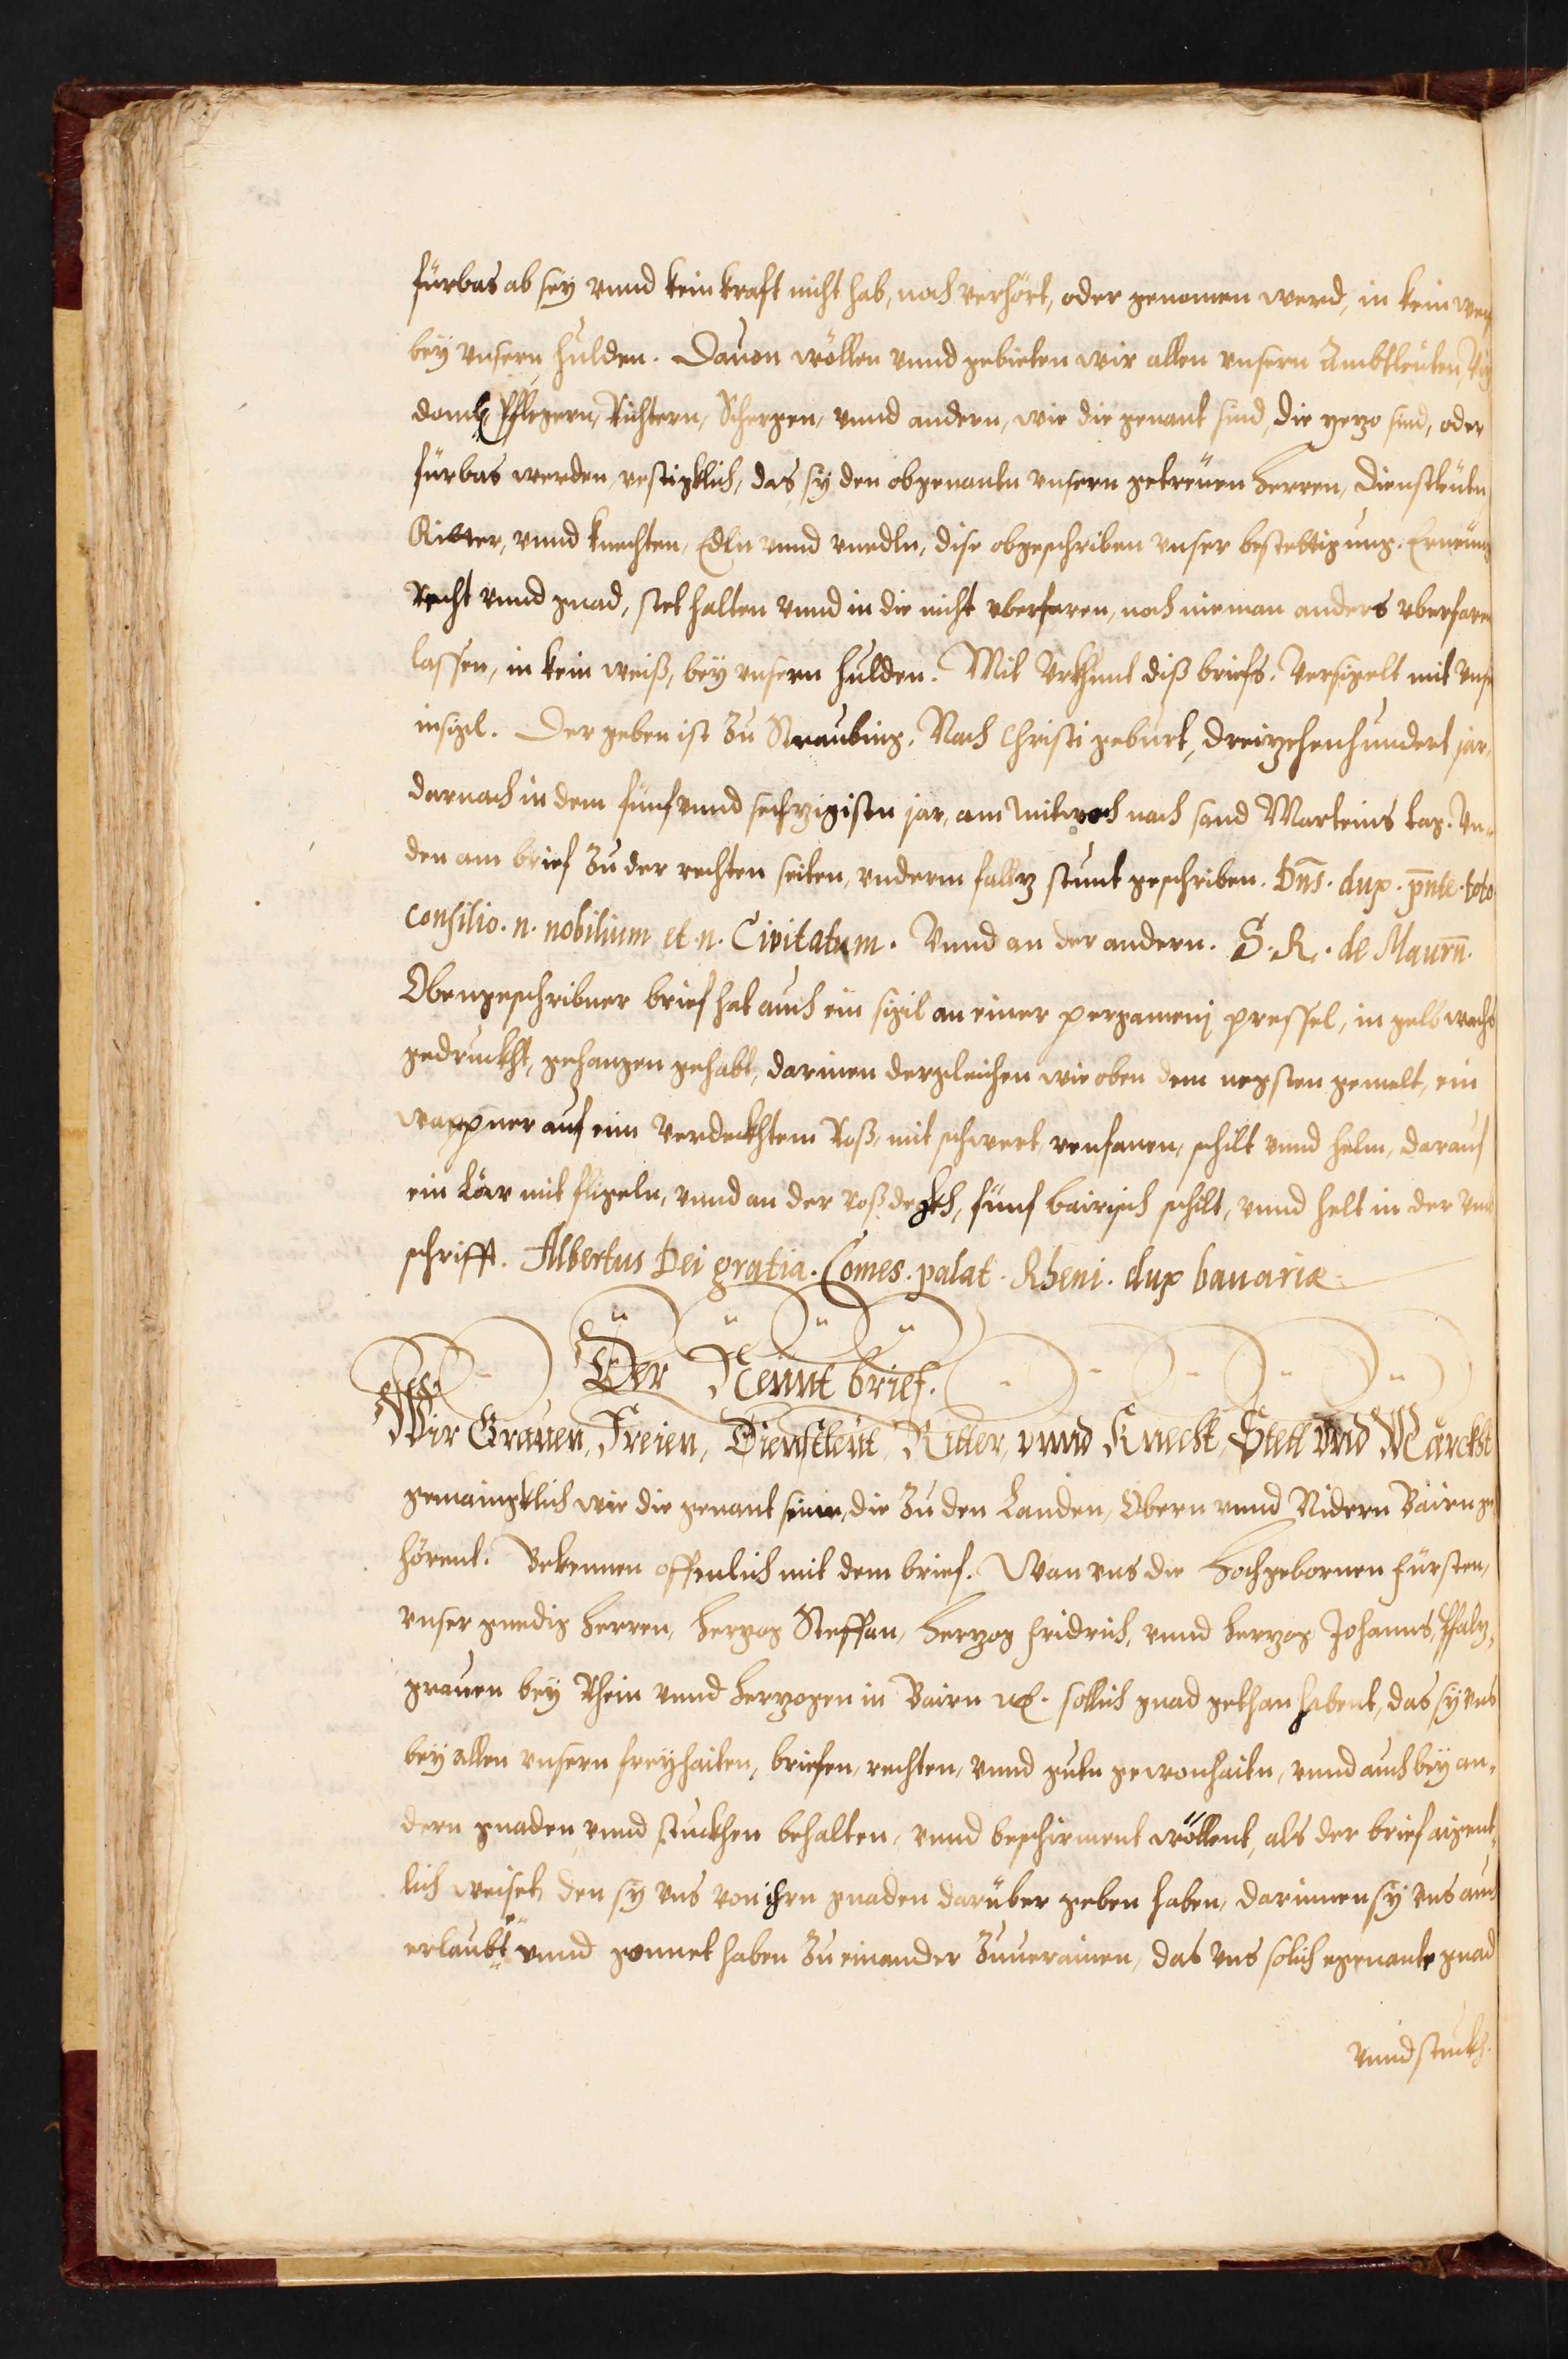 fürbas ab sey vnnd kein kraft nicht hab, noch verhört, oder genomen werd, in kein weg
bey vnsern hulden. Dauon wöllen vnnd gebieten wir allen vnsern Ambtleuten, Viz
domb, Pflegern, Richtern, Schergen, vnnd andern, wie die genant sind, die yezo sind, oder
fürbas werden, vestigklich, das sy den obgenantn vnsern getreuen Herren, Dienstleutn
Ritter, vnnd knechten, Edln vnnd vnedln, dise obgeschriben vnser bestettigung. Erneuung
Recht vnnd gnad, stet halten vnnd in die nicht vberfaren, noch nieman anders vberfaren
lassen, in kein weiß, bey vnsern hulden. Mit Vrkhunt diß briefs. Versigelt mit vnse
insigl. Der geben ist zu Straubing. Nach Christi geburt, dreizehenhundert jar,
darnach in dem fünf vnnd sechzigistn jar, am Mitwoch nach sand Marteins tag. Vn-
den am brief zu der rechten seiten, vnderm falz stund geschriben. Dn̄s. dux. p̄nte. toto
consilio. n. nobilium et n. Civitatum. Vnnd an der andern. S. R. de Maurn̄.
Obengeschribner brief hat auch ein sigil an einer pergameni pressel, in gelb wachs
gedruckht, gehangen gehabt, darinnen dergleichen wie oben dem negsten gemelt, ein
wappner auf eim verdeckhtem Roß, mit schwert, renfanen, schilt vnnd helm, darauf
ein Löw mit fligeln, vnnd an der roßdeckh, fünf bairisch schilt, vnnd helt in der vmb
schrifft. Albertus Dei gratia. Comes. palat. Rheni. dux bauariæ
Der Neunt brief.
Wir Grauen, Freien, Dienstleut, Ritter, vnnd Knecht, Stett vnd Märckht
gemaingklich wie die genant seinn, die zu den Landen, Obern vnnd Nidern Bairn ge
hörent. Bekennen offenlich mit dem brief. Wan vns die Hochgebornen fürsten,
vnser gnedig Herren, Herzog Steffan, Herzog Fridrich, vnnd Herzog Johanns, Pfalz-
grauen bey Rhein vnnd Herzogen in Bairn etc. sollich gnad gethan habent, das sy vns
bey allen vnsern freyhaiten, briefen, rechten, vnnd gutn gewonhaitn, vnnd auch bey an-
dern gnaden vnnd stuckhen behalten, vnnd beschirment wöllent, als der brief aigent-
lich weiset, den sy vns von ihrn gnaden darüber geben haben, darinnen sy vns auch
erlaubt vnnd gonnet haben zu einander zuuerainen, das vns solich egenante gnad
vnnd stuckh.